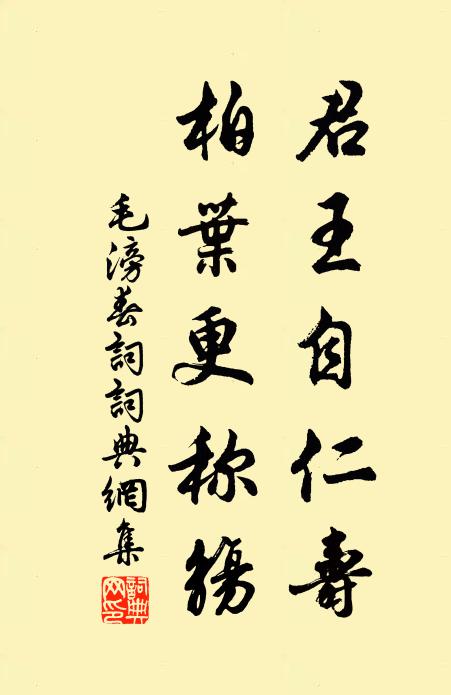 君王自仁壽
柏葉更称觴
毛滂春詞詞典網集
詞典
网印